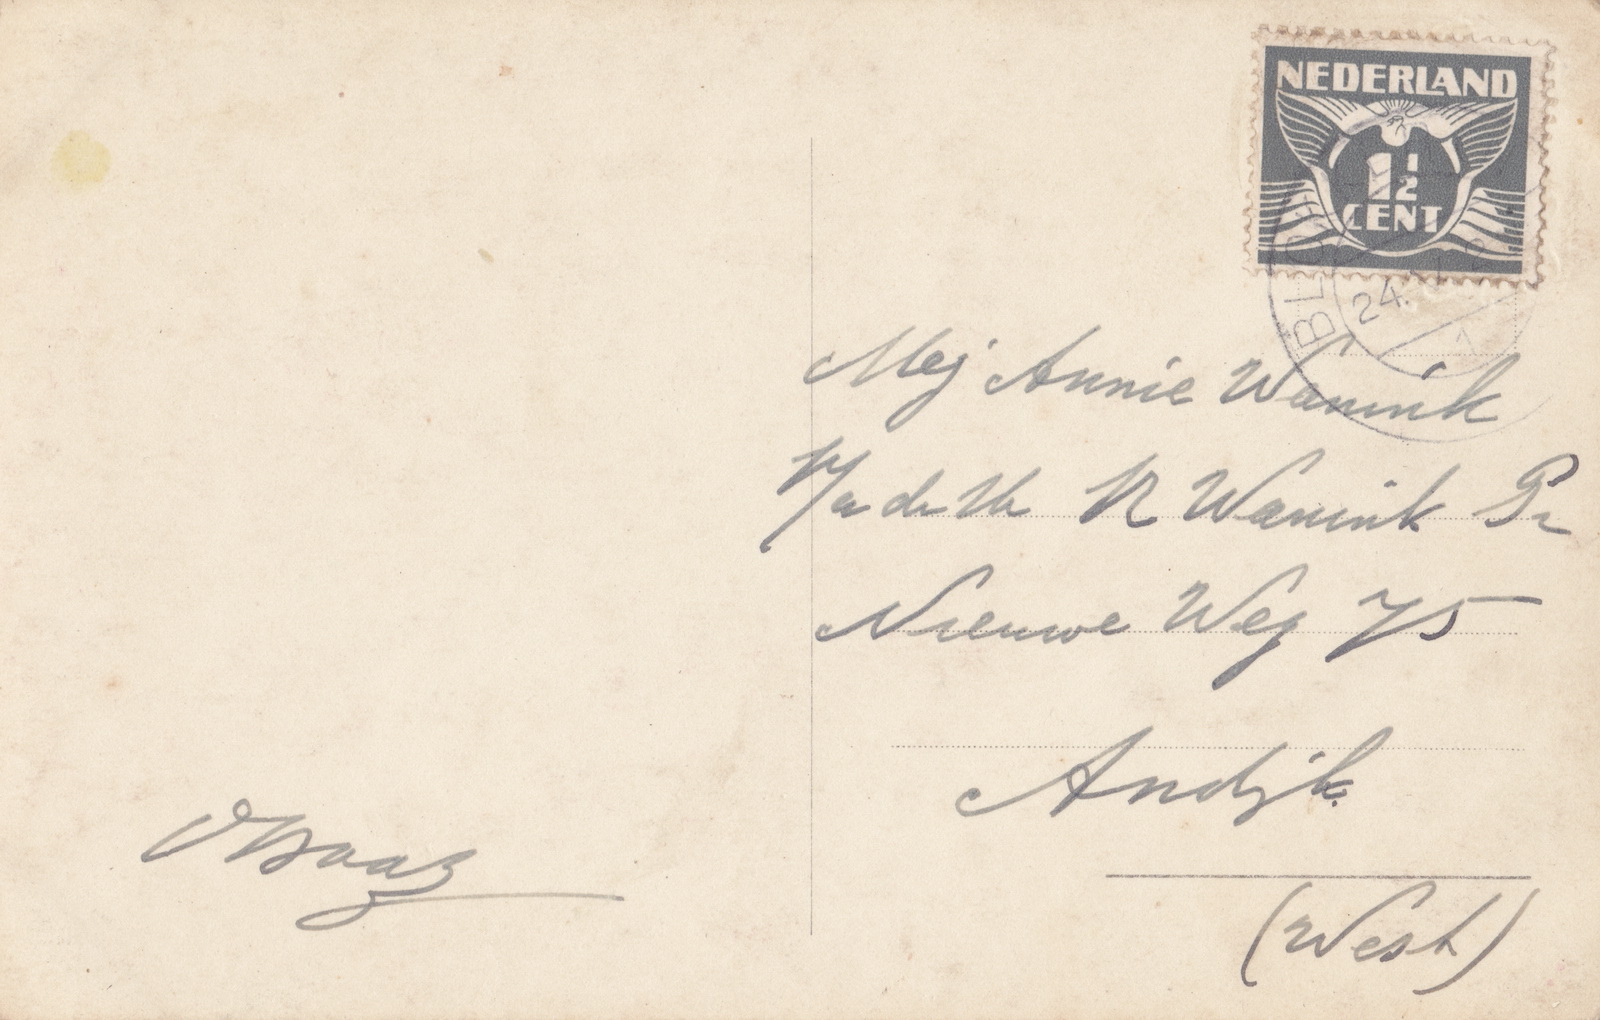 NEDERLAND
1½
CENT
BLO
24.
1
Mej Annie Wanink
p/a de Hr R Wanink Pz
Nieuwe Weg 75
Andijk.
(West)